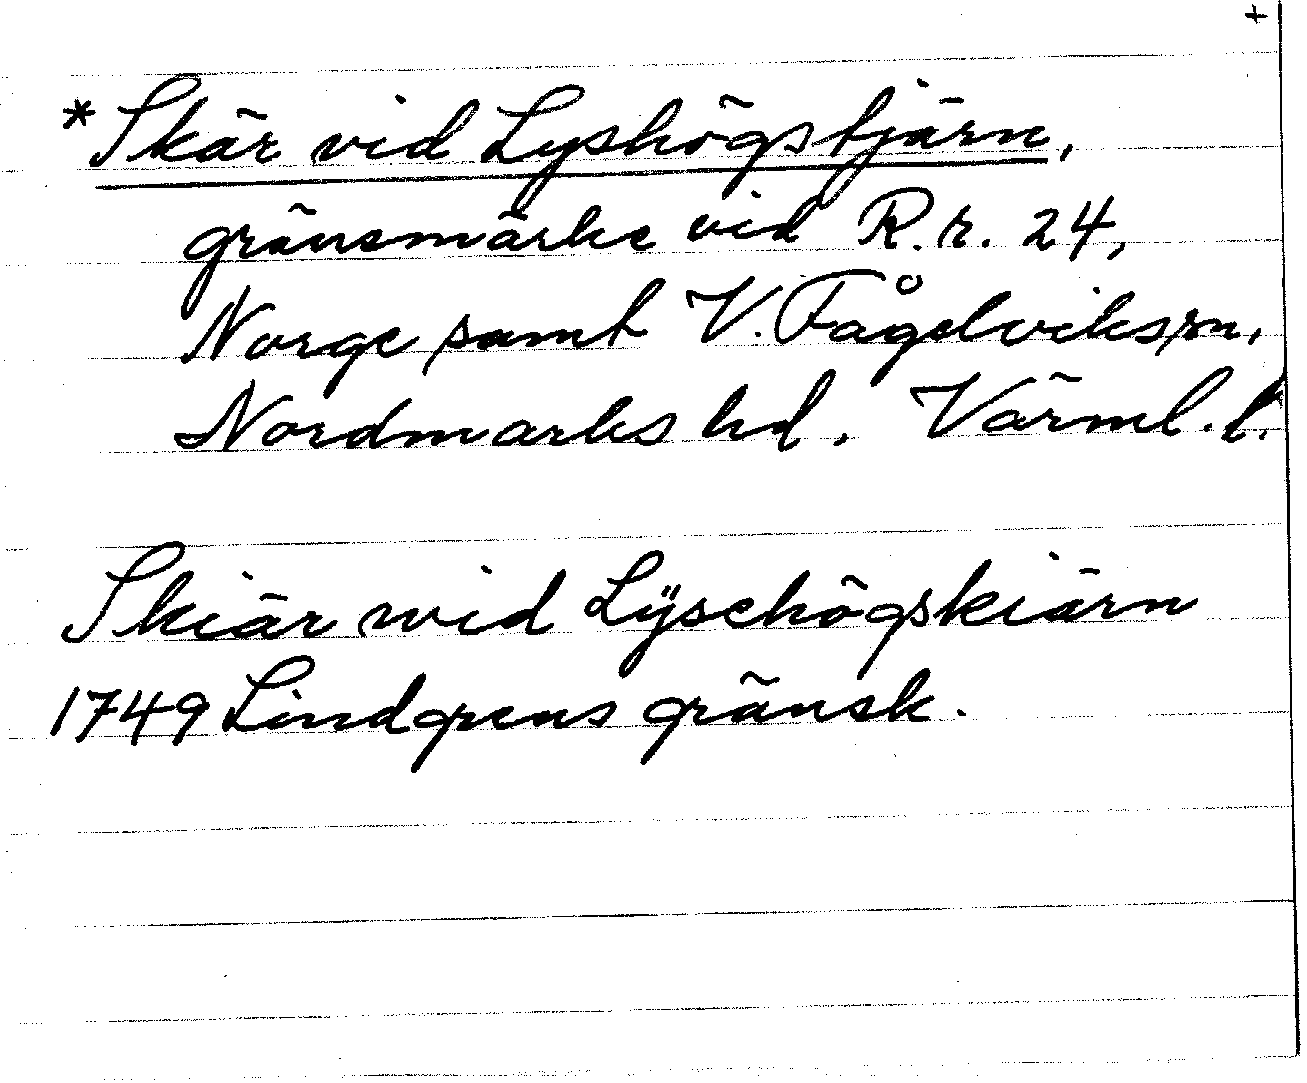 +
*Skär vid Lyshögstjärn,
gränsmärke vid R.r. 24,
Norge samt V. Fågelviks sn,
Nordmarks hd. Värml. l.
Skiär wid Lÿsehögskiärn
1749 Lindgrens gränsk.